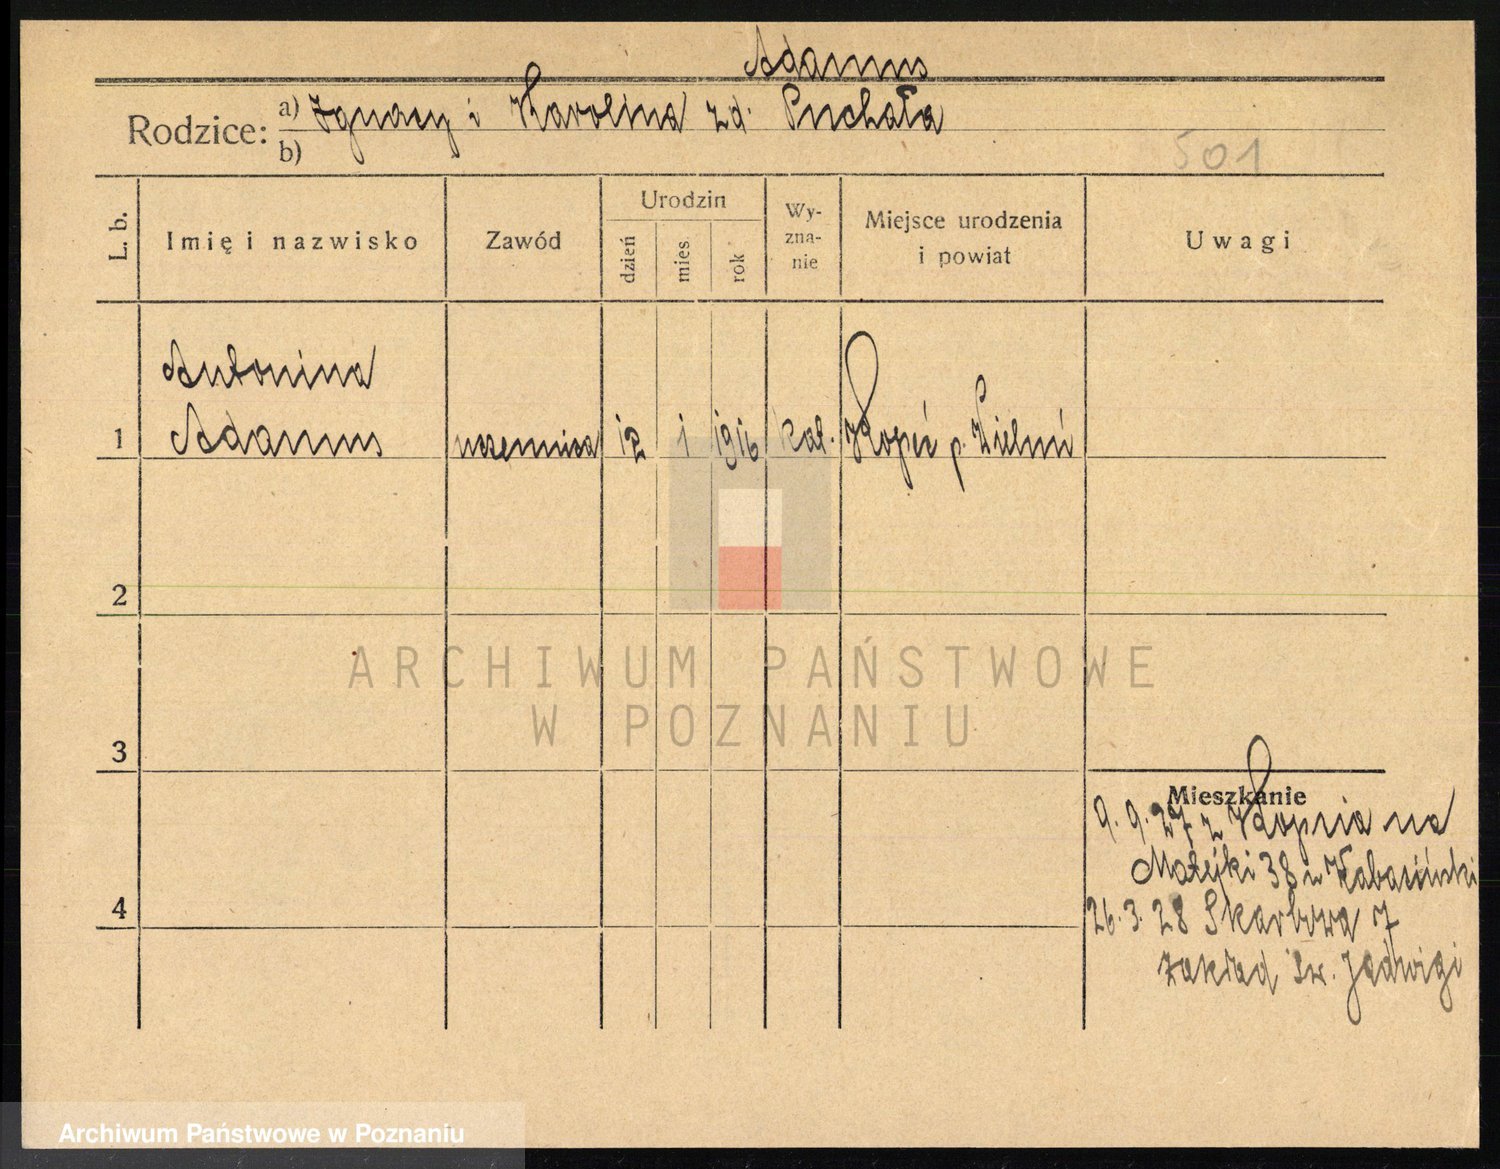 Adamus
Rodzice: a) Ignacy i Karolina zd. Puchała
b)
501
L. b. Imię i nazwisko Zawód Urodzin dzień mies. rok Wyzna-nie Miejsce urodzenia i powiat Uwagi
Antonina
1 Adamus uczennica 12 1 1916 kat. Kopeć p. Wieluń
2
3
Mieszkanie
9. 9. 27 z Kopcia na
Matejki 38 u
4
26. 3. 28 Skarbowa 7
zakład Św. Jadwigi
ARCHIWUM PAŃSTWOWE
W POZNANIU
Archiwum Państwowe w Poznaniu